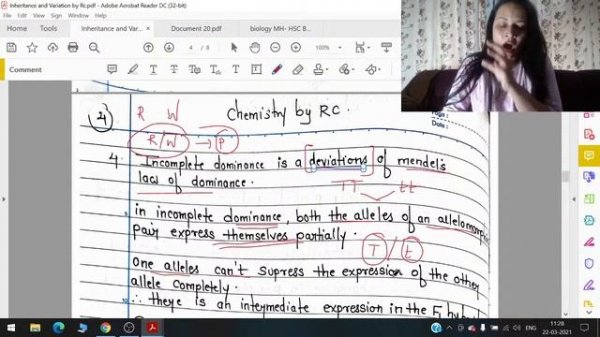 Inheritance and Variation by Rc.pdf - Adobe Acrobat Reader DC (32-bit)
File Edit View Sign Window Help
Home Tools Inheritance and Var... Document 20.pdf biology MH- HSC B...
4 / 8 100%
Comment
4 R W Chemistry by RC.
Page:
Date:
R/W → P
4. Incomplete dominance is a [deviations] of mendel's
law of dominance. TT tt
in incomplete dominance, both the alleles of an
pair express themselves partially. T / t
One alleles can't supress the expression of the other
allele completely.
∴ there is an intermediate expression in the F1
11:28
22-03-2021